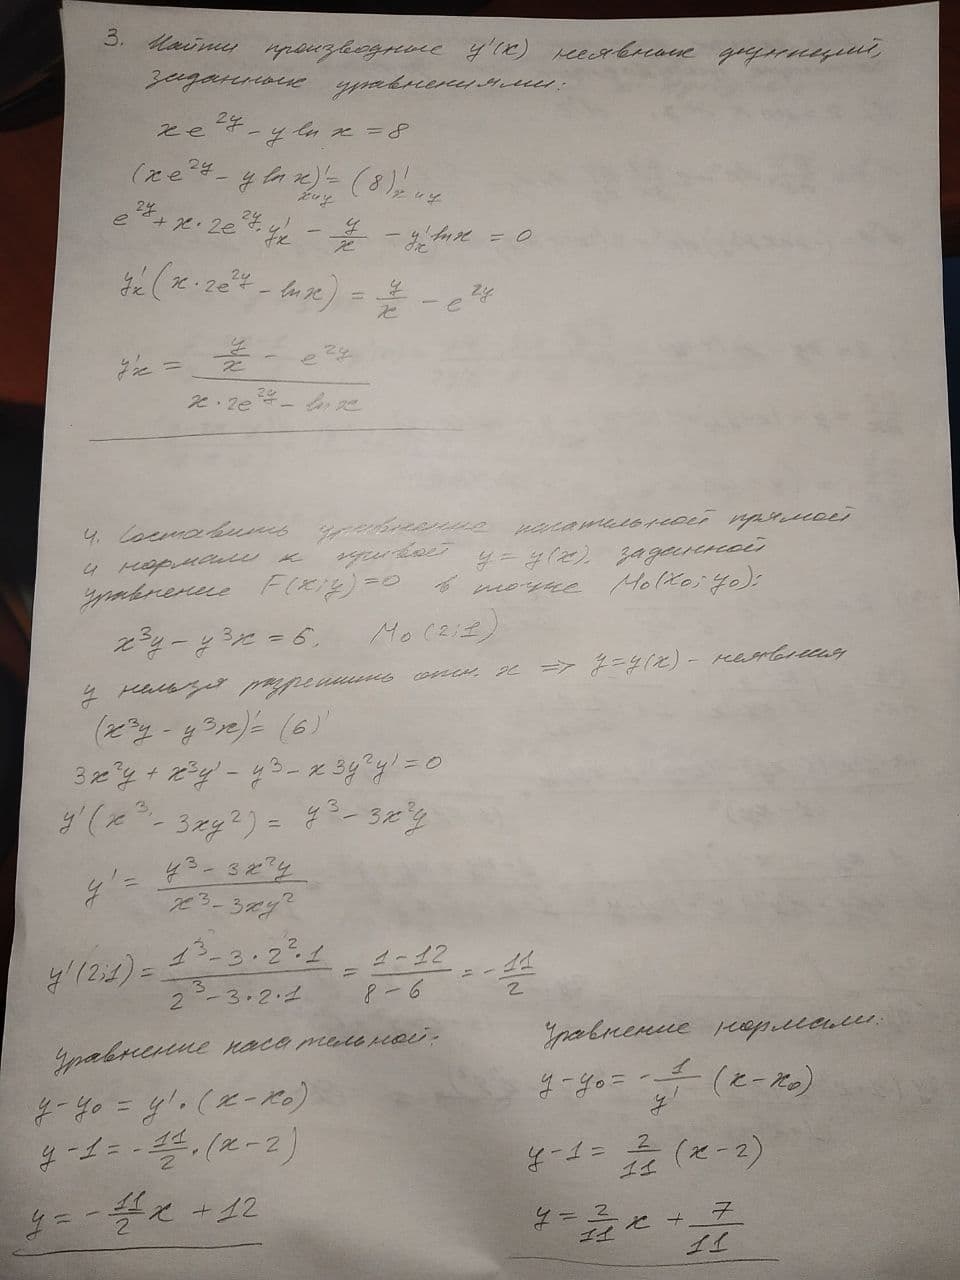 3. Найти производные y'(x) неявных функций,
заданных уравнениями:
xe^{2y} - y ln x = 8
(xe^{2y} - y ln x)'_{x и y} = (8)'_{x и y}
e^{2y} + x · 2e^{2y} · y'_x - \frac{y}{x} - y'_x ln x = 0
y'_x (x · 2e^{2y} - ln x) = \frac{y}{x} - e^{2y}
y'_x = \frac{\frac{y}{x} - e^{2y}}{x · 2e^{2y} - ln x}
4. Составить уравнение касательной прямой
и нормали к кривой y = y(x), заданной
уравнение F(x; y) = 0 в точке M_0(x_0; y_0):
x^3y - y^3x = 6, M_0(2;1)
y нельзя разрешить отн. x => y = y(x) - неявная
(x^3y - y^3x)' = (6)'
3x^2y + x^3y' - y^3 - x3y^2y' = 0
y'(x^3 - 3xy^2) = y^3 - 3x^2y
y' = \frac{y^3 - 3x^2y}{x^3 - 3xy^2}
y'(2;1) = \frac{1^3 - 3 · 2^2 · 1}{2^3 - 3 · 2 · 1} = \frac{1 - 12}{8 - 6} = -\frac{11}{2}
Уравнение касательной:
y - y_0 = y' · (x - x_0)
y - 1 = -\frac{11}{2} · (x - 2)
y = -\frac{11}{2}x + 12
Уравнение нормали:
y - y_0 = -\frac{1}{y'} (x - x_0)
y - 1 = \frac{2}{11} (x - 2)
y = \frac{2}{11}x + \frac{7}{11}